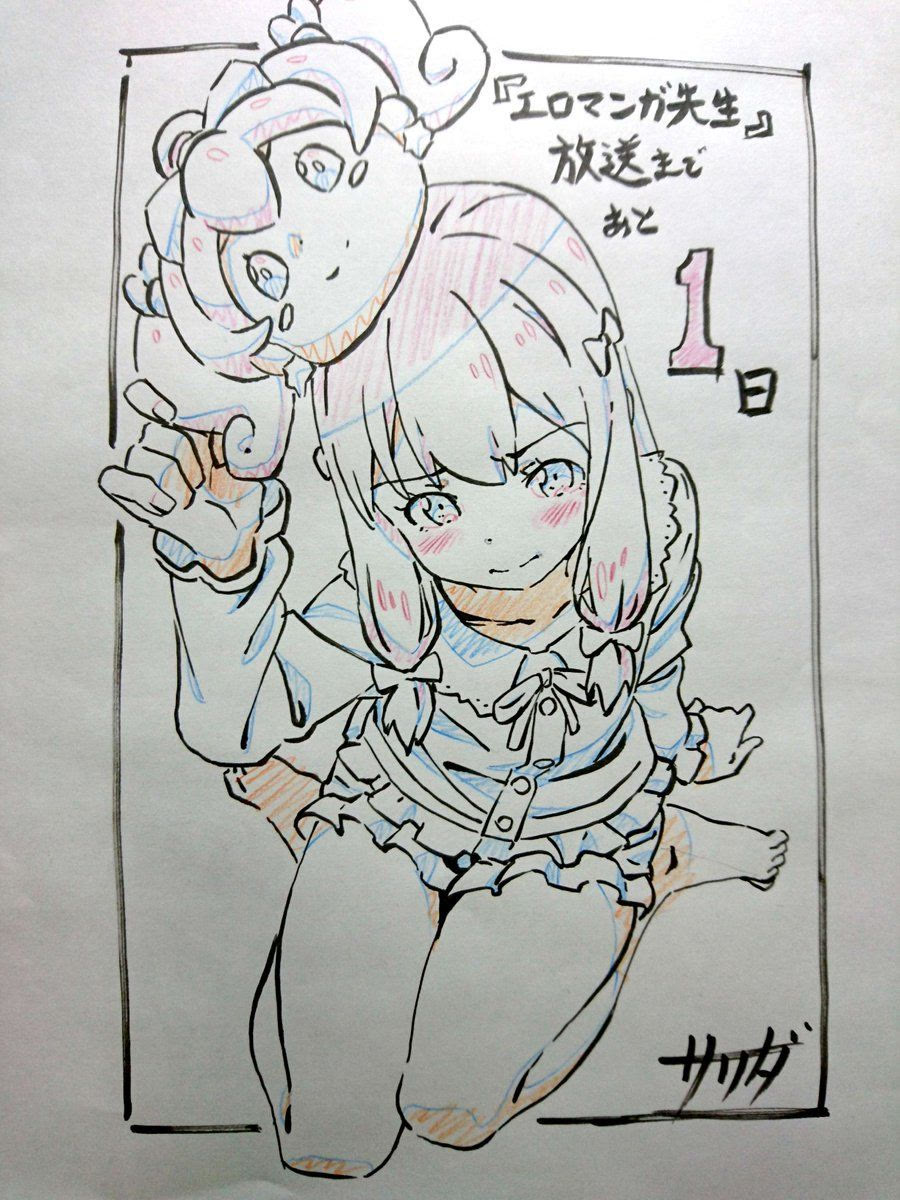 『エロマンガ先生』
放送まで
あと
1
日
サワダ